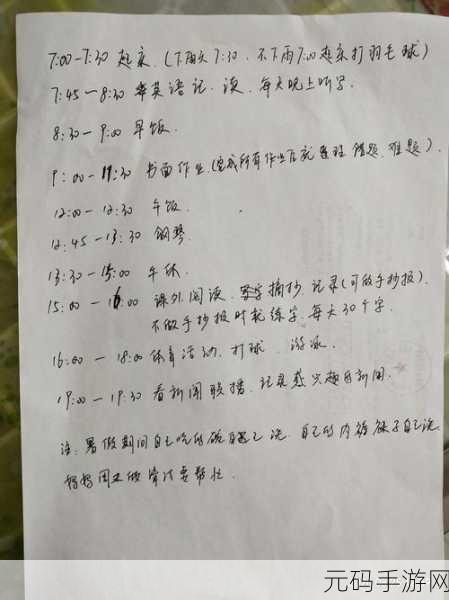 7:00-7:30 起床.(下雨天7:30.不下雨7:00起来打羽毛球)
7:45-8:30 英语记.读.每天晚上听写.
8:30-9:00 早饭.
9:00-11:30 书面作业.(完成所有作业后就整理 错题.难题).
12:00-12:30 午饭.
12:45-13:30 钢琴.
13:30-15:00 午休.
15:00-16:00 课外阅读.摘抄.记录(可做手抄报).
不做手抄报时就练字.每天30个字.
16:00-18:00 体育活动.打球.游泳.
19:00-19:30 看新闻联播.记录感兴趣的新闻.
注:暑假期间自己吃的碗自己洗.自己的内裤袜子自己洗
妈妈周五做清洁要帮忙.
元码手游网